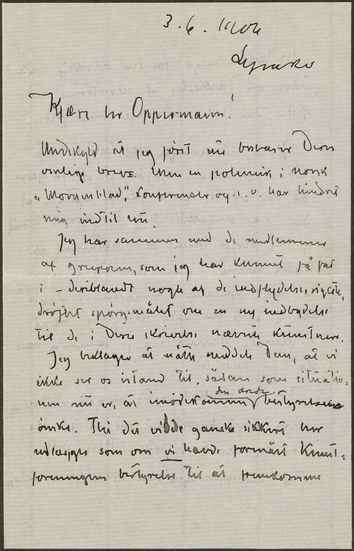 3. 6. 1904
Lysaker
Kjære hr Oppermann!
Undskyld at jeg først nu besvarer Deres
venlige brev. Men en polemik i norsk
"Morgenblad", konferencer og s. v. har hindret
mig indtil nu.
Jeg har sammen med de medlemmer
af gruppen, som jeg har kunnet få fat
i – deriblandt nogle af de indflydelsesrigste,
drøftet spørgsmålet om en ny indbydelse
til de i Deres skrivelse nævnte kunstnere.
Jeg beklager at måtte meddele Dem, at vi
ikke ser os istand til, sådan som situatio-
nen nu er, at imødekomme den ærede bestyrelses
ønske. Thi det vilde ganske sikkert her
udlægges som om vi havde formået Kunst-
foreningens bestyrelse til at fremkomme